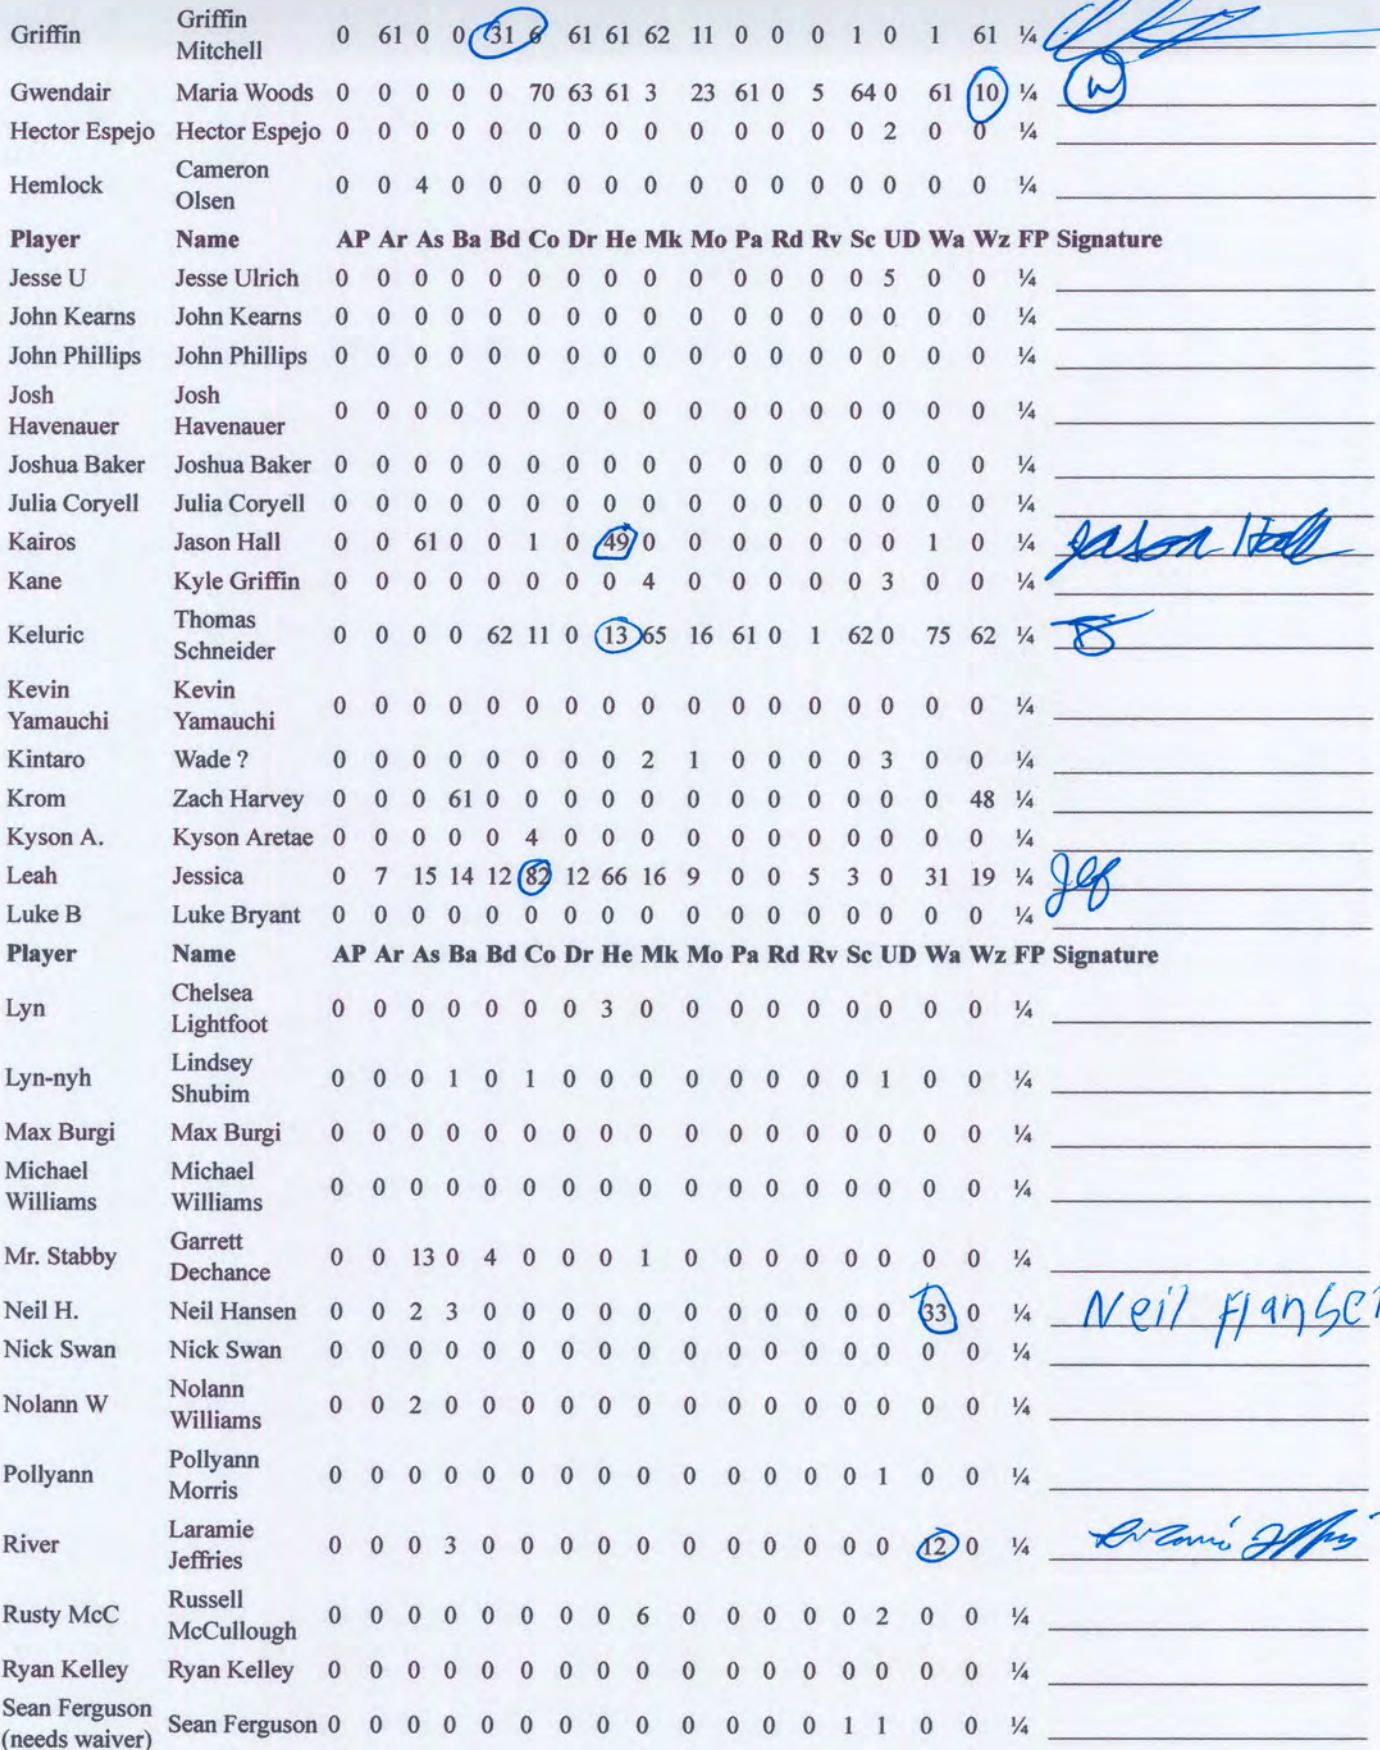 Griffin Griffin Mitchell 0 61 0 0 31 6 61 61 62 11 0 0 0 1 0 1 61 ¼
Gwendair Maria Woods 0 0 0 0 0 70 63 61 3 23 61 0 5 64 0 61 10 ¼ W
Hector Espejo Hector Espejo 0 0 0 0 0 0 0 0 0 0 0 0 0 0 2 0 0 ¼
Hemlock Cameron Olsen 0 0 4 0 0 0 0 0 0 0 0 0 0 0 0 0 0 ¼
Player Name AP Ar As Ba Bd Co Dr He Mk Mo Pa Rd Rv Sc UD Wa Wz FP Signature
Jesse U Jesse Ulrich 0 0 0 0 0 0 0 0 0 0 0 0 0 0 5 0 0 ¼
John Kearns John Kearns 0 0 0 0 0 0 0 0 0 0 0 0 0 0 0 0 0 ¼
John Phillips John Phillips 0 0 0 0 0 0 0 0 0 0 0 0 0 0 0 0 0 ¼
Josh Havenauer Josh Havenauer 0 0 0 0 0 0 0 0 0 0 0 0 0 0 0 0 0 ¼
Joshua Baker Joshua Baker 0 0 0 0 0 0 0 0 0 0 0 0 0 0 0 0 0 ¼
Julia Coryell Julia Coryell 0 0 0 0 0 0 0 0 0 0 0 0 0 0 0 0 0 ¼
Kairos Jason Hall 0 0 61 0 0 1 0 49 0 0 0 0 0 0 0 1 0 ¼ Jason Hall
Kane Kyle Griffin 0 0 0 0 0 0 0 0 4 0 0 0 0 0 3 0 0 ¼
Keluric Thomas Schneider 0 0 0 0 62 11 0 13 65 16 61 0 1 62 0 75 62 ¼
Kevin Yamauchi Kevin Yamauchi 0 0 0 0 0 0 0 0 0 0 0 0 0 0 0 0 0 ¼
Kintaro Wade ? 0 0 0 0 0 0 0 0 2 1 0 0 0 0 3 0 0 ¼
Krom Zach Harvey 0 0 0 61 0 0 0 0 0 0 0 0 0 0 0 0 48 ¼
Kyson A. Kyson Aretae 0 0 0 0 0 4 0 0 0 0 0 0 0 0 0 0 0 ¼
Leah Jessica 0 7 15 14 12 82 12 66 16 9 0 0 5 3 0 31 19 ¼
Luke B Luke Bryant 0 0 0 0 0 0 0 0 0 0 0 0 0 0 0 0 0 ¼
Player Name AP Ar As Ba Bd Co Dr He Mk Mo Pa Rd Rv Sc UD Wa Wz FP Signature
Lyn Chelsea Lightfoot 0 0 0 0 0 0 0 3 0 0 0 0 0 0 0 0 0 ¼
Lyn-nyh Lindsey Shubim 0 0 0 1 0 1 0 0 0 0 0 0 0 0 1 0 0 ¼
Max Burgi Max Burgi 0 0 0 0 0 0 0 0 0 0 0 0 0 0 0 0 0 ¼
Michael Williams Michael Williams 0 0 0 0 0 0 0 0 0 0 0 0 0 0 0 0 0 ¼
Mr. Stabby Garrett Dechance 0 0 13 0 4 0 0 0 1 0 0 0 0 0 0 0 0 ¼
Neil H. Neil Hansen 0 0 2 3 0 0 0 0 0 0 0 0 0 0 0 33 0 ¼ Neil Hansen
Nick Swan Nick Swan 0 0 0 0 0 0 0 0 0 0 0 0 0 0 0 0 0 ¼
Nolann W Nolann Williams 0 0 2 0 0 0 0 0 0 0 0 0 0 0 0 0 0 ¼
Pollyann Pollyann Morris 0 0 0 0 0 0 0 0 0 0 0 0 0 0 1 0 0 ¼
River Laramie Jeffries 0 0 0 3 0 0 0 0 0 0 0 0 0 0 0 12 0 ¼
Rusty McC Russell McCullough 0 0 0 0 0 0 0 0 6 0 0 0 0 0 2 0 0 ¼
Ryan Kelley Ryan Kelley 0 0 0 0 0 0 0 0 0 0 0 0 0 0 0 0 0 ¼
Sean Ferguson (needs waiver) Sean Ferguson 0 0 0 0 0 0 0 0 0 0 0 0 0 1 1 0 0 ¼